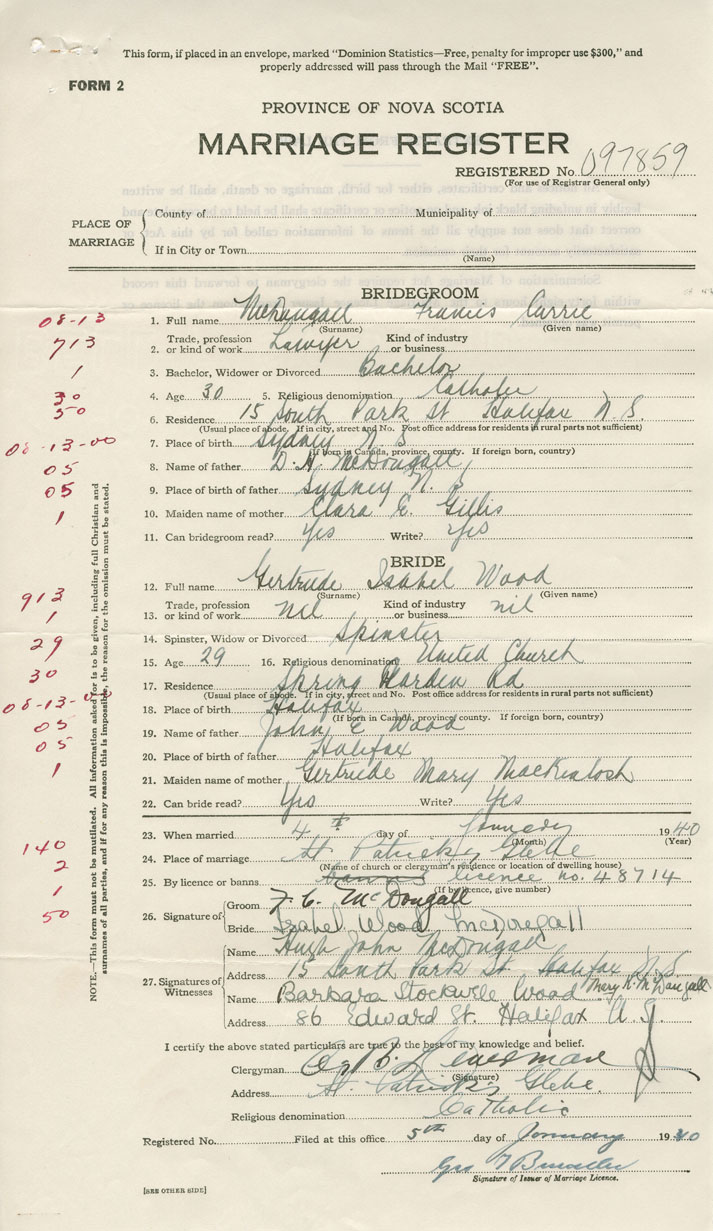 This form, if placed in an envelope, marked "Dominion Statistics—Free, penalty for improper use $300," and
properly addressed will pass through the Mail "FREE".
FORM 2
PROVINCE OF NOVA SCOTIA
MARRIAGE REGISTER
REGISTERED No. 097859
(For use of Registrar General only)
PLACE OF MARRIAGE
County of
Municipality of
If in City or Town
(Name)
BRIDEGROOM
08-13
1. Full name McDougall Francis Currie
(Surname) (Given name)
713
2. Trade, profession or kind of work Lawyer Kind of industry or business
1
3. Bachelor, Widower or Divorced Bachelor
30
4. Age 30 5. Religious denomination Catholic
50
6. Residence 15 South Park St Halifax N.S.
(Usual place of abode. If in city, street and No. Post office address for residents in rural parts not sufficient)
08-13-00
7. Place of birth Sydney N.S
(If born in Canada, province, county. If foreign born, country)
05
8. Name of father D. H. McDougall
05
9. Place of birth of father Sydney N. S
1
10. Maiden name of mother Clara E. Gillis
11. Can bridegroom read? Yes Write? Yes
BRIDE
12. Full name Gertrude Isabel Wood
(Surname) (Given name)
913
13. Trade, profession or kind of work nil Kind of industry or business nil
1
14. Spinster, Widow or Divorced Spinster
29
15. Age 29 16. Religious denomination United Church
30
17. Residence Spring Garden Rd
(Usual place of abode. If in city, street and No. Post office address for residents in rural parts not sufficient)
08-13-00
18. Place of birth Halifax
(If born in Canada, province, county. If foreign born, country)
05
19. Name of father John E Wood
05
20. Place of birth of father Halifax
1
21. Maiden name of mother Gertrude Mary MacKintosh
22. Can bride read? Yes Write? Yes
23. When married 4th day of January 1940
(Month) (Year)
140
24. Place of marriage St Patrick's Glebe
(Name of church or clergyman's residence or location of dwelling house)
2
25. By licence or banns Banns licence no. 48714
(If by licence, give number)
1
50
26. Signature of
Groom F. C. McDougall
Bride Isabel Wood McDougall
27. Signatures of Witnesses
Name Hugh John McDougall
Address 15 South Park St. Halifax N.S.
Mary R. McDougall
Name Barbara Stockwell Wood
Address 86 Edward St. Halifax N.S.
I certify the above stated particulars are true to the best of my knowledge and belief.
Clergyman
(Signature)
Address St. Patrick's Glebe
Religious denomination Catholic
Registered No. Filed at this office 5th day of January 1940
Geo
Signature of Issuer of Marriage Licence.
[SEE OTHER SIDE]
NOTE.—This form must not be mutilated. All information asked for is to be given, including full Christian and
surnames of all parties, and if for any reason this is impossible, the reason for the omission must be stated.